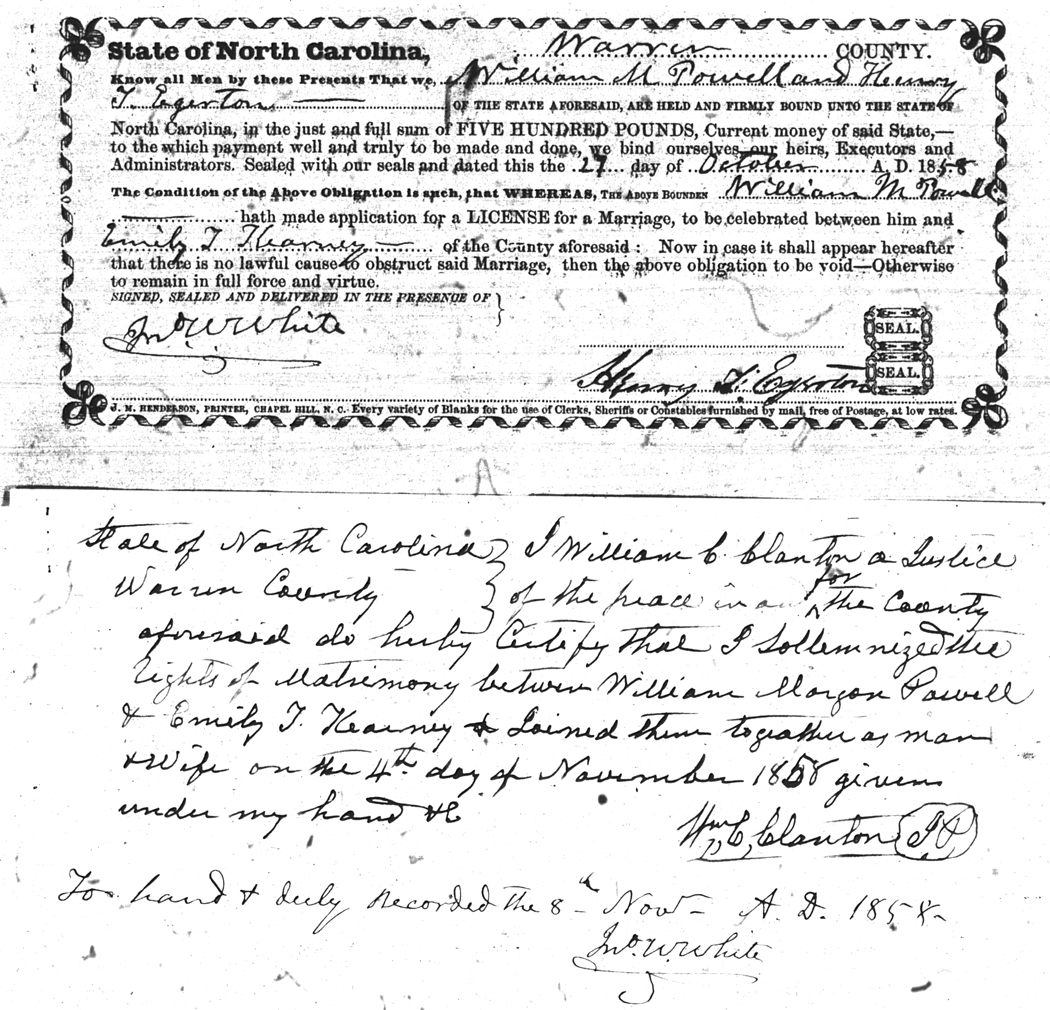 State of North Carolina, Warren COUNTY.
Know all Men by these Presents That we, William M Powell and Henry
T. Egerton OF THE STATE AFORESAID, ARE HELD AND FIRMLY BOUND UNTO THE STATE OF
North Carolina, in the just and full sum of FIVE HUNDRED POUNDS, Current money of said State,—
to the which payment well and truly to be made and done, we bind ourselves our heirs, Executors and
Administrators. Sealed with our seals and dated this the 27 day of October A. D. 1858
The Condition of the Above Obligation is such, that WHEREAS, THE ABOVE BOUNDEN William M Powell
hath made application for a LICENSE for a Marriage, to be celebrated between him and
Emily T Kearney of the County aforesaid : Now in case it shall appear hereafter
that there is no lawful cause to obstruct said Marriage, then the above obligation to be void—Otherwise
to remain in full force and virtue.
SIGNED, SEALED AND DELIVERED IN THE PRESENCE OF }
Jno W. White
SEAL.
Henry T. Egerton SEAL.
J. M. HENDERSON, PRINTER, CHAPEL HILL, N. C. Every variety of Blanks for the use of Clerks, Sheriffs or Constables furnished by mail, free of Postage, at low rates.
A
State of North Carolina } I William C. Clanton a Justice
Warren County } of the peace in an for the County
aforesaid do herby Certify that I Sollemnized the
Rights of Matrimony between William Morgan Powell
& Emily T. Kearney & Joined them togeather as man
& Wife on the 4th day of November 1858 given
under my hand &C
Wm C. Clanton JP
To hand & duly recorded the 8th Nov- A. D. 1858-
Jno. W. White